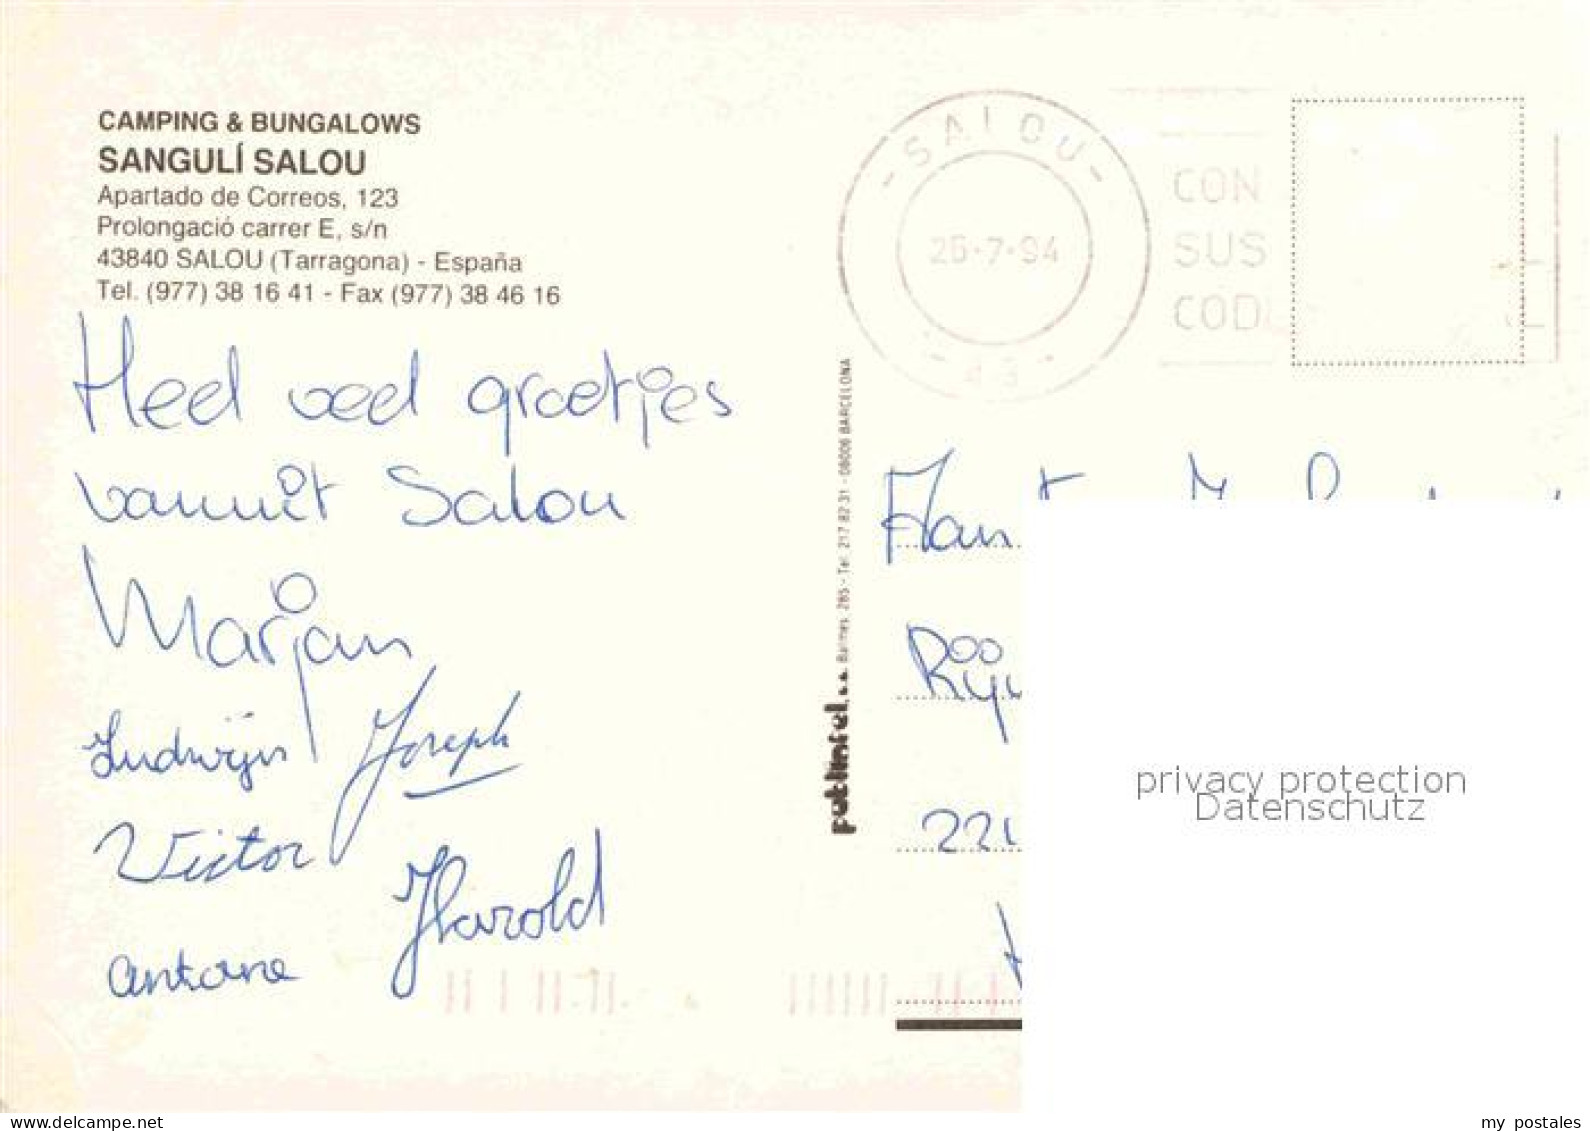 CAMPING & BUNGALOWS
SANGULÍ SALOU
Apartado de Correos, 123
Prolongació carrer E, s/n
43840 SALOU (Tarragona) - España
Tel. (977) 38 16 41 - Fax (977) 38 46 16
Heel veel groetjes
vanuit Salou
Marjan
Ludwijn Joseph
Victor
Harold
Antone
publintel, s.a. Balmes, 285 - Tel. 217 82 31 - 08006 BARCELONA
- SALOU -
25-7-94
43
CON
SUS
COD
Aan
221
privacy protection
Datenschutz
my postales